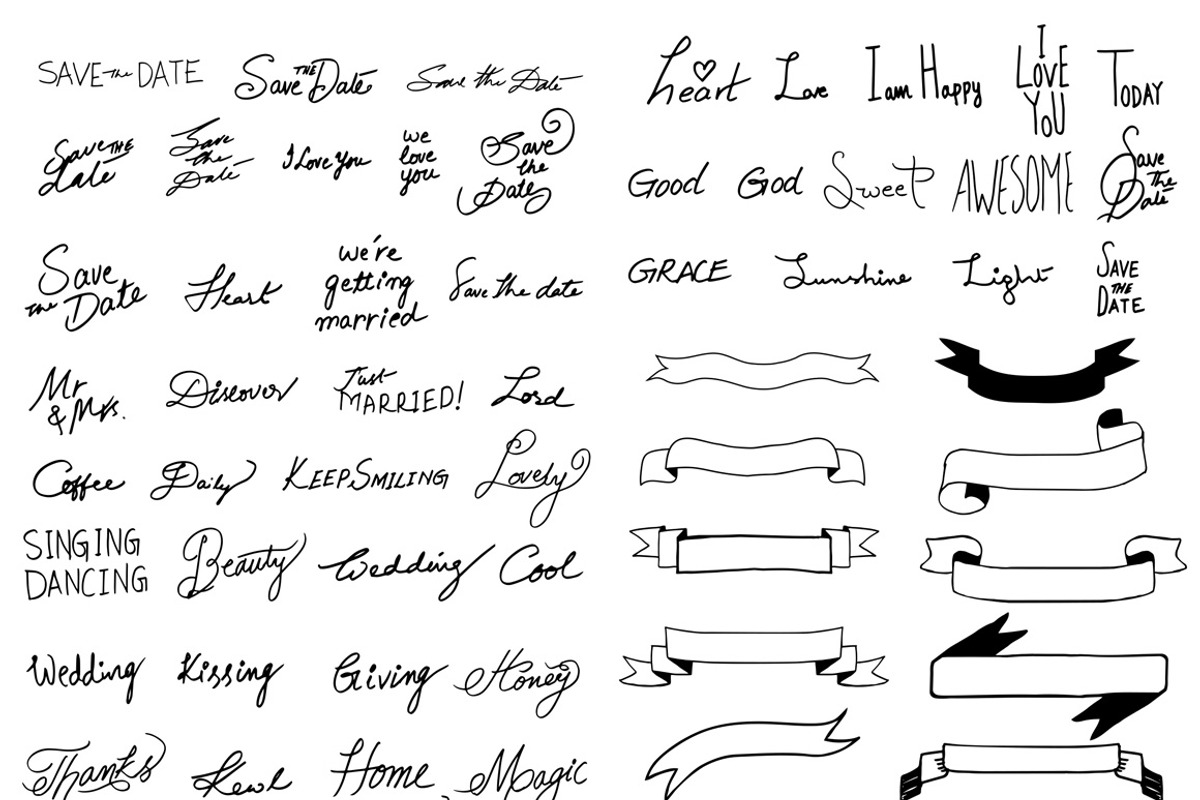 SAVE the DATE
Save THE Date
Save the Date
Save THE
date
Save
the
Date
I Love You
we
love
you
Save
the
Date
Save
the Date
Heart
we're
getting
married
Save the date
Mr
& Mrs.
Discover
Just
MARRIED!
Lord
Coffee
Daily
KEEP SMILING
Lovely
SINGING
DANCING
Beauty
Wedding
Cool
Wedding
Kissing
Giving
Honey
Thanks
Home
Magic
heart
Love
I am Happy
I
LOVE
YOU
TODAY
Good
God
Sweet
AWESOME
Save
the
Date
GRACE
Sunshine
Light
SAVE
THE
DATE